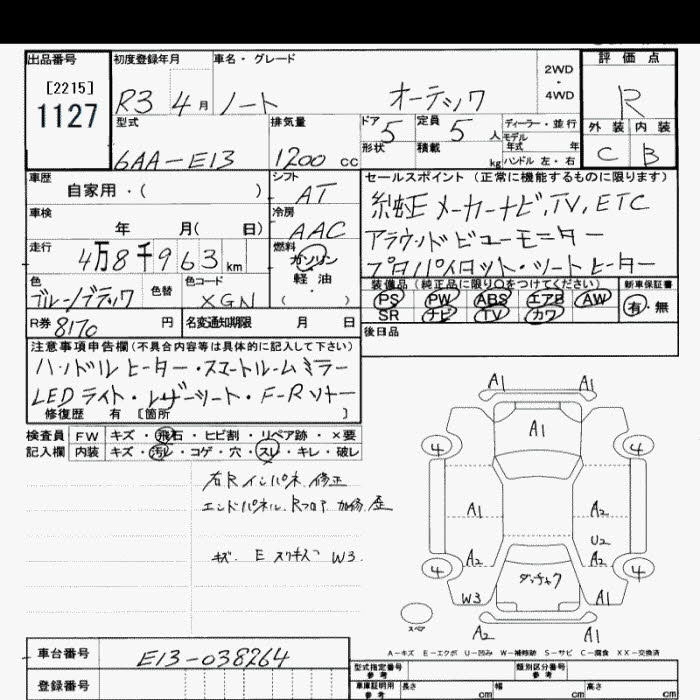 出品番号
[2215]
1127
初度登録年月
R3 4月
車名・グレード
ノート オーテック
2WD
・
4WD
評価点
R
外装 内装
C B
型式
6AA-E13
排気量
1200 cc
ドア 5
定員 5 人
形状
積載 kg
ディーラー・並行
モデル
年式 年
ハンドル 左・右
車歴
自家用・( )
シフト
AT
車検
年 月( 日)
冷房
AAC
走行
4万8千963km
燃料
ガソリン
・
軽油
( )
色
ブルー/ブラック
色替
色コード
XGN
R券 8170 円
名変通知期限 月 日
セールスポイント(正常に機能するものに限ります)
純正メーカーナビ,TV,ETC
アラウンドビューモニター
プロパイロット・シートヒーター
装備品(純正品に限り○をつけてください)
PS PW ABS エアB AW
SR ナビ TV カワ
新車保証書
有・無
後日品
注意事項申告欄(不具合内容等は具体的に記入して下さい)
ハンドルヒーター・スマートルームミラー
LEDライト・レザーシート・F-Rソナー
修復歴 有 〔箇所 〕
検査員
記入欄
FW キズ・飛石・ヒビ割・リペア跡・×要
内装 キズ・汚レ・コゲ・穴・スレ・キレ・破レ
右Rインパネ修正
エンドパネル.Rフロア 加修歪
キズ. E スリキズ W3
A1 A1
A1
4 4
A1 A2
U2
A2 A2
4 4
ダッチャク
W3 A1
スペア
A2 A1
A-キズ E-エクボ U-凹み W-補修跡 S-サビ C-腐食 XX-交換済
車台番号
E13-038264
登録番号
型式指定番号
参考
類別区分番号
参考
車庫証明用
参考
長さ cm
幅 cm
高さ cm